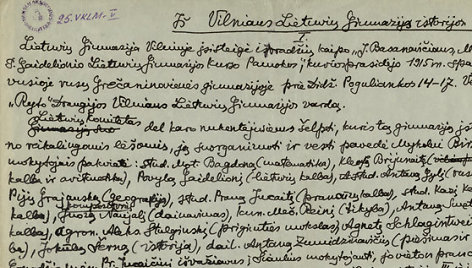 95. VKLM-V
Iš Vilniaus Lietuvių Gimnazijos istorijos
I.
Lietuvių Gimnazija Vilniuje įsisteigė iš pradžių, kaipo „J. Basanavičiaus, M.
P. Gaidelionio Lietuvių Gimnazijos kurso Pamokos", kurios prasidėjo 1915 m. spa
vusioje rusų Grečaninavienės gimnazijoje prie Didž. Poguliankos 14-17. V
„Ryto" Draugijos Vilniaus Lietuvių Gimnazijos vardą.
Lietuvių komitetas
del karo nukentėjusiems šelpti, kuris tą gimnaziją iš
no reikalingomis lėšomis, ją suorganizuoti ir vesti pavedė Mykolui Bir
mokytojais pakviesti: stud. Myk. Bagdoną (matematika), kleb.
kalba ir aritmetika), Povylą Gaidelionį (lietuvių kalba), stud. Antaną Gylį (rus
Pijų Grajauską (geografija), stud. Praną Jucaitį (prancūzų kalba), stud. Kazį
kalba), Juozą Naujalį (dainavimas), kun. Meč. Reinį (tikyba), Antaną
kalba), agron. Aleks. Stulginskį (prigimties mokslas), Agnetę Schlagintwei
ba), Jokūbą Šerną (istorija), dail. Antaną Žmuidzinavičių (piešimas ir
Pr. Jucaičiui išvažiavus į Šiaulius mokytojauti, jo vieton pran